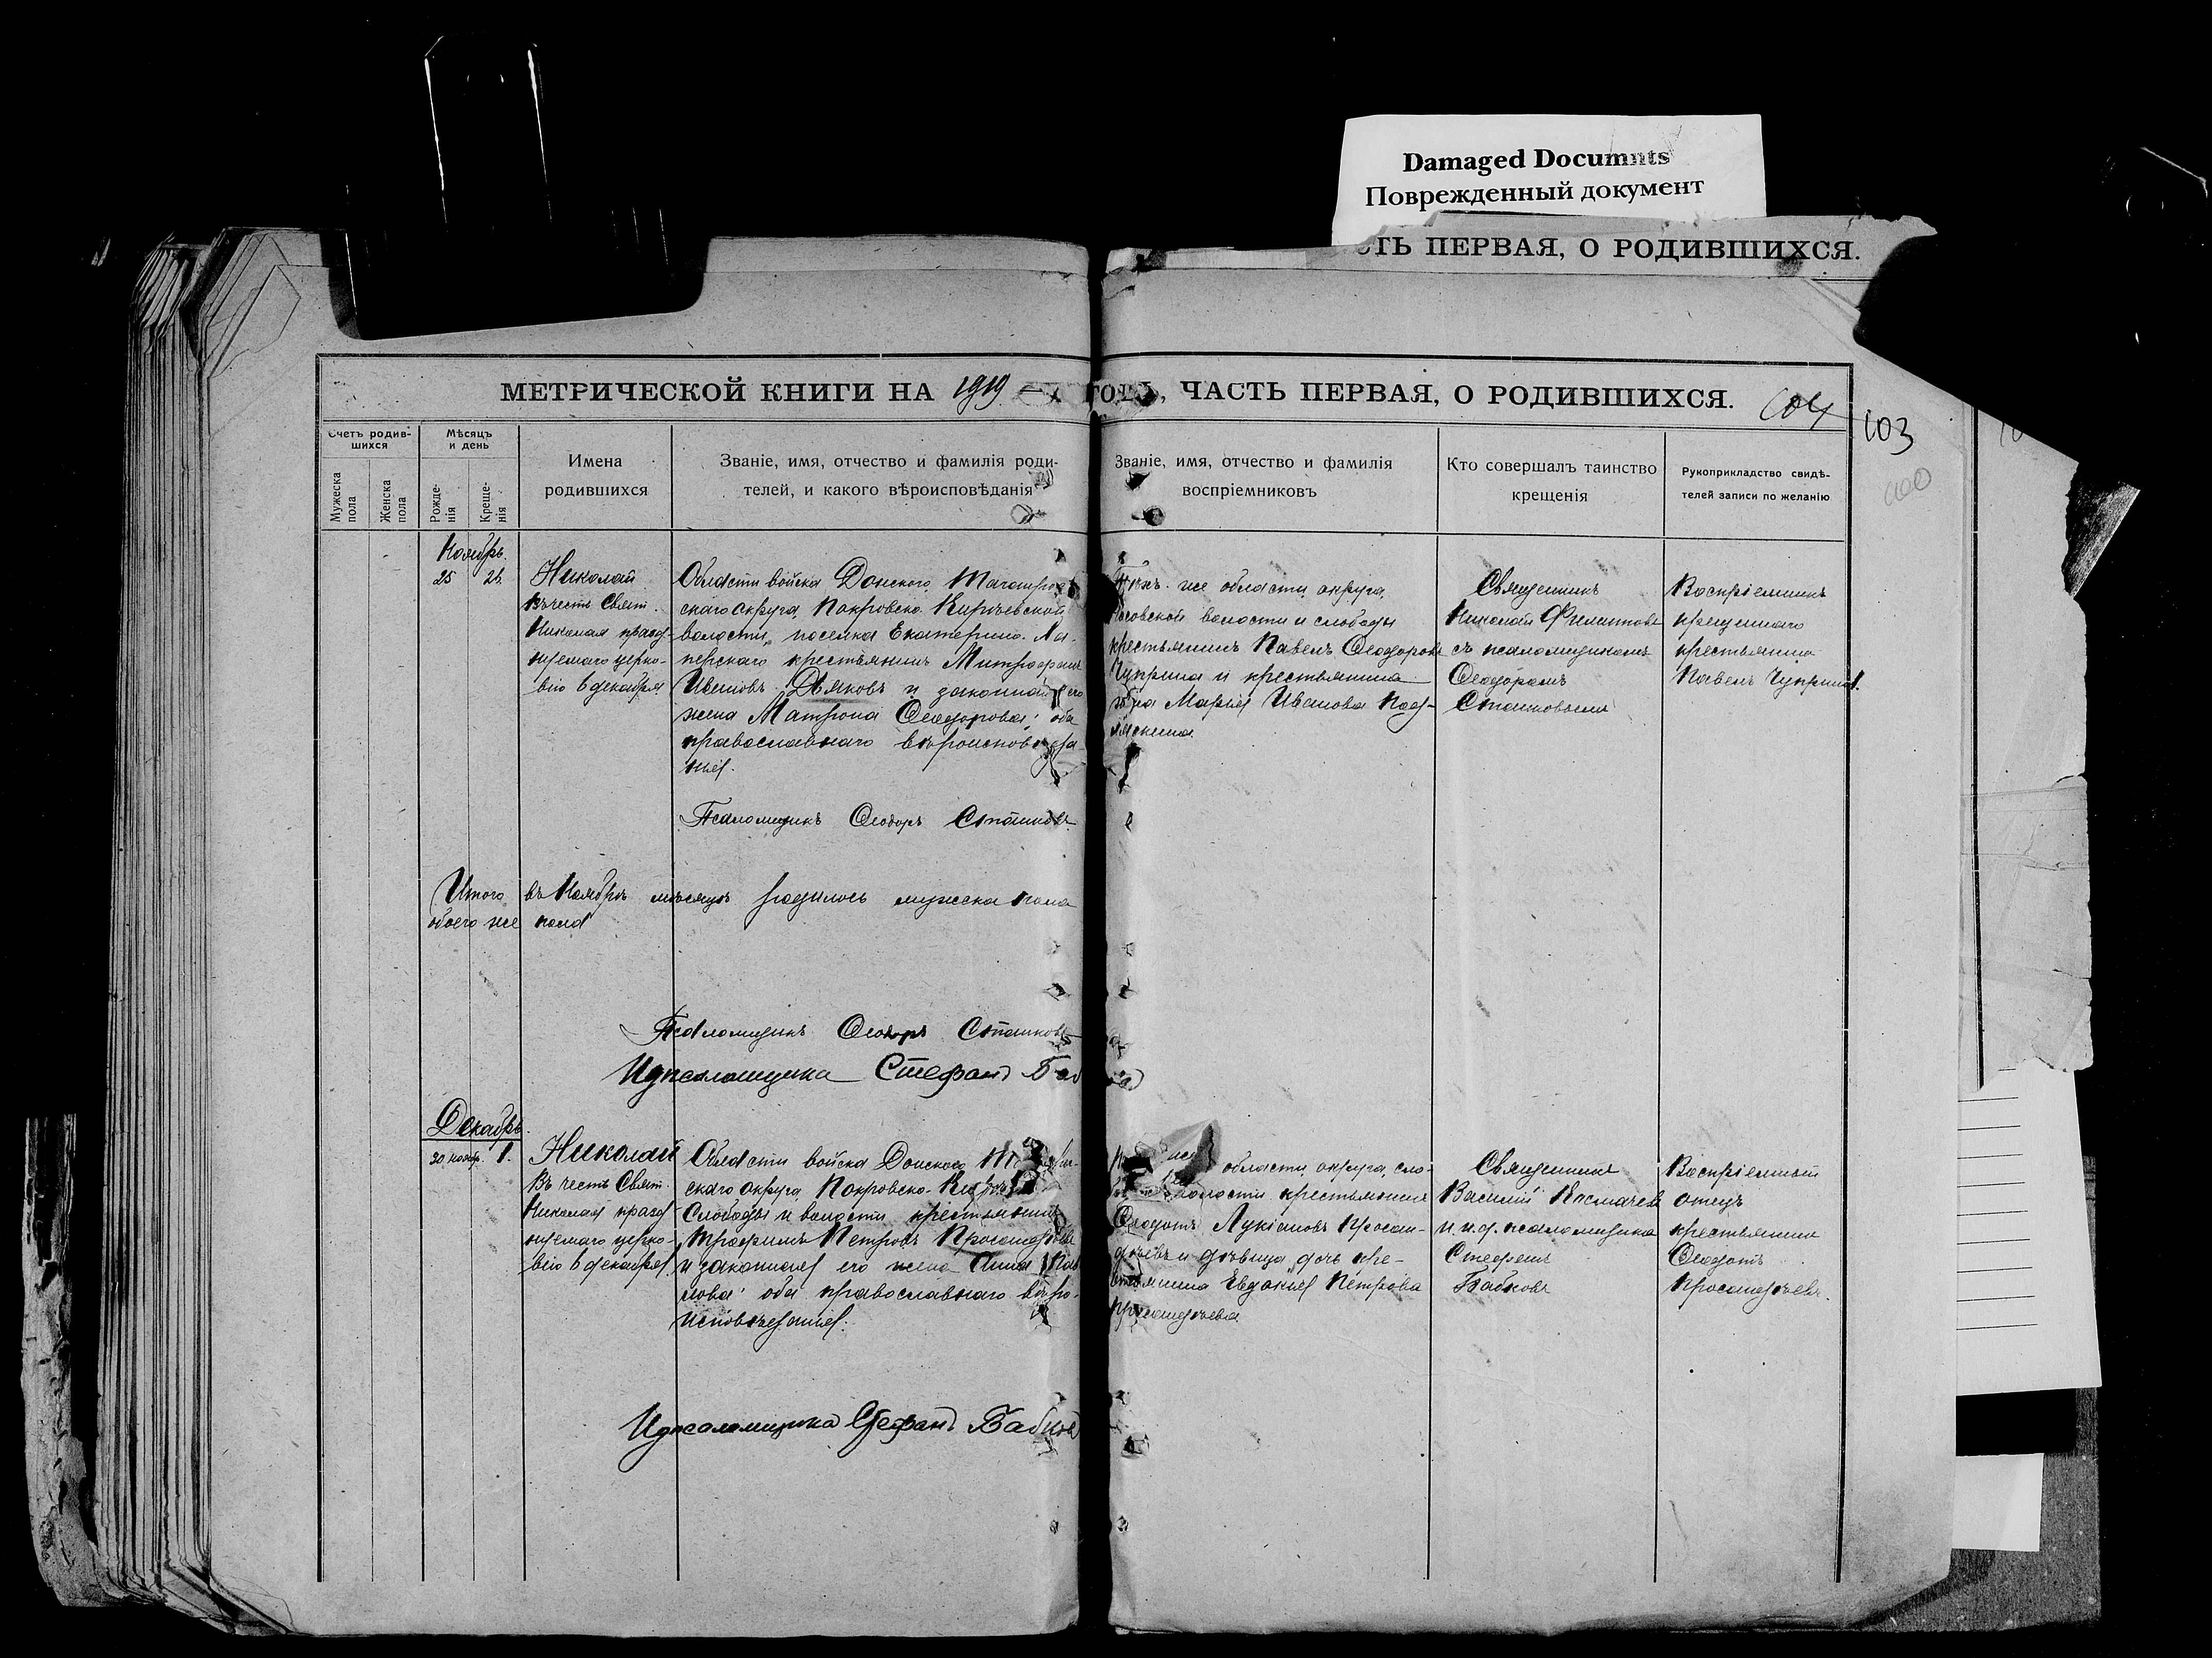 Damaged Documnts
Поврежденный документ
СТЬ ПЕРВАЯ, О РОДИВШИХСЯ.
МЕТРИЧЕСКОЙ КНИГИ НА 1919 ГОДЪ, ЧАСТЬ ПЕРВАЯ, О РОДИВШИХСЯ.
104
103
Счетъ родив-
шихся
Мужеска
пола
Женска
пола
Мѣсяцъ
и день
Рожде-
нія
Креще-
нія
Имена
родившихся
Званіе, имя, отчество и фамилія роди-
телей, и какого вѣроисповѣданія
Званіе, имя, отчество и фамилія
воспріемниковъ
Кто совершалъ таинство
крещенія
Рукоприкладство свидѣ-
телей записи по желанію
Ноябрь.
25 26
Николай
Въ честь Свят.
Николая празд-
нуемаго церко-
вію 6 декабря
Области войска Донского, Таганрог
скаго округа, Покровско-Киреевской
волости, поселка Екатерино-
крестьянинъ Митрофанъ
Ивановъ Дьяковъ и законная его
жена Матрона Ѳеодорова; оба
православнаго вѣроисповѣда-
нія.
Псаломщикъ Ѳеодоръ Сташковъ
же области округа,
волости и слободы
крестьянинъ Павелъ Ѳеодоровъ
Чуприна и крестьянина
Марія Иванова
Священникъ
Николай Филипповъ
съ псаломщикомъ
Ѳеодоромъ
Сташковымъ
Воспріемникъ
крестьянинъ
Павелъ Чуприна.
Итого въ Ноябрѣ мѣсяцѣ родилось мужска пола
обоего же пола
Псаломщикъ Ѳеодоръ Сташковъ
Идпсаломщика Стефанъ Баб
Декабрь.
30 нояб. 1.
Николай
Въ честь Свят.
Николая празд-
нуемаго церко-
вію 6 декабря.
Области войска Донского
скаго округа Покровско-Кир
слободы и волости крестьянинъ
Трофимъ Петровъ
и законная его жена Анна Пав
лова; оба православнаго вѣро-
исповѣданія.
Идпсаломщика Стефанъ Бабковъ
области округа, сло-
волости крестьянинъ
Ѳеодотъ Лукіановъ
и дѣвица дочь кре-
стьянина Евдокія Петрова
Священникъ
Василій
и. д. псаломщика
Стефанъ
Бабковъ
Воспріемный
отецъ
крестьянинъ
Ѳеодотъ